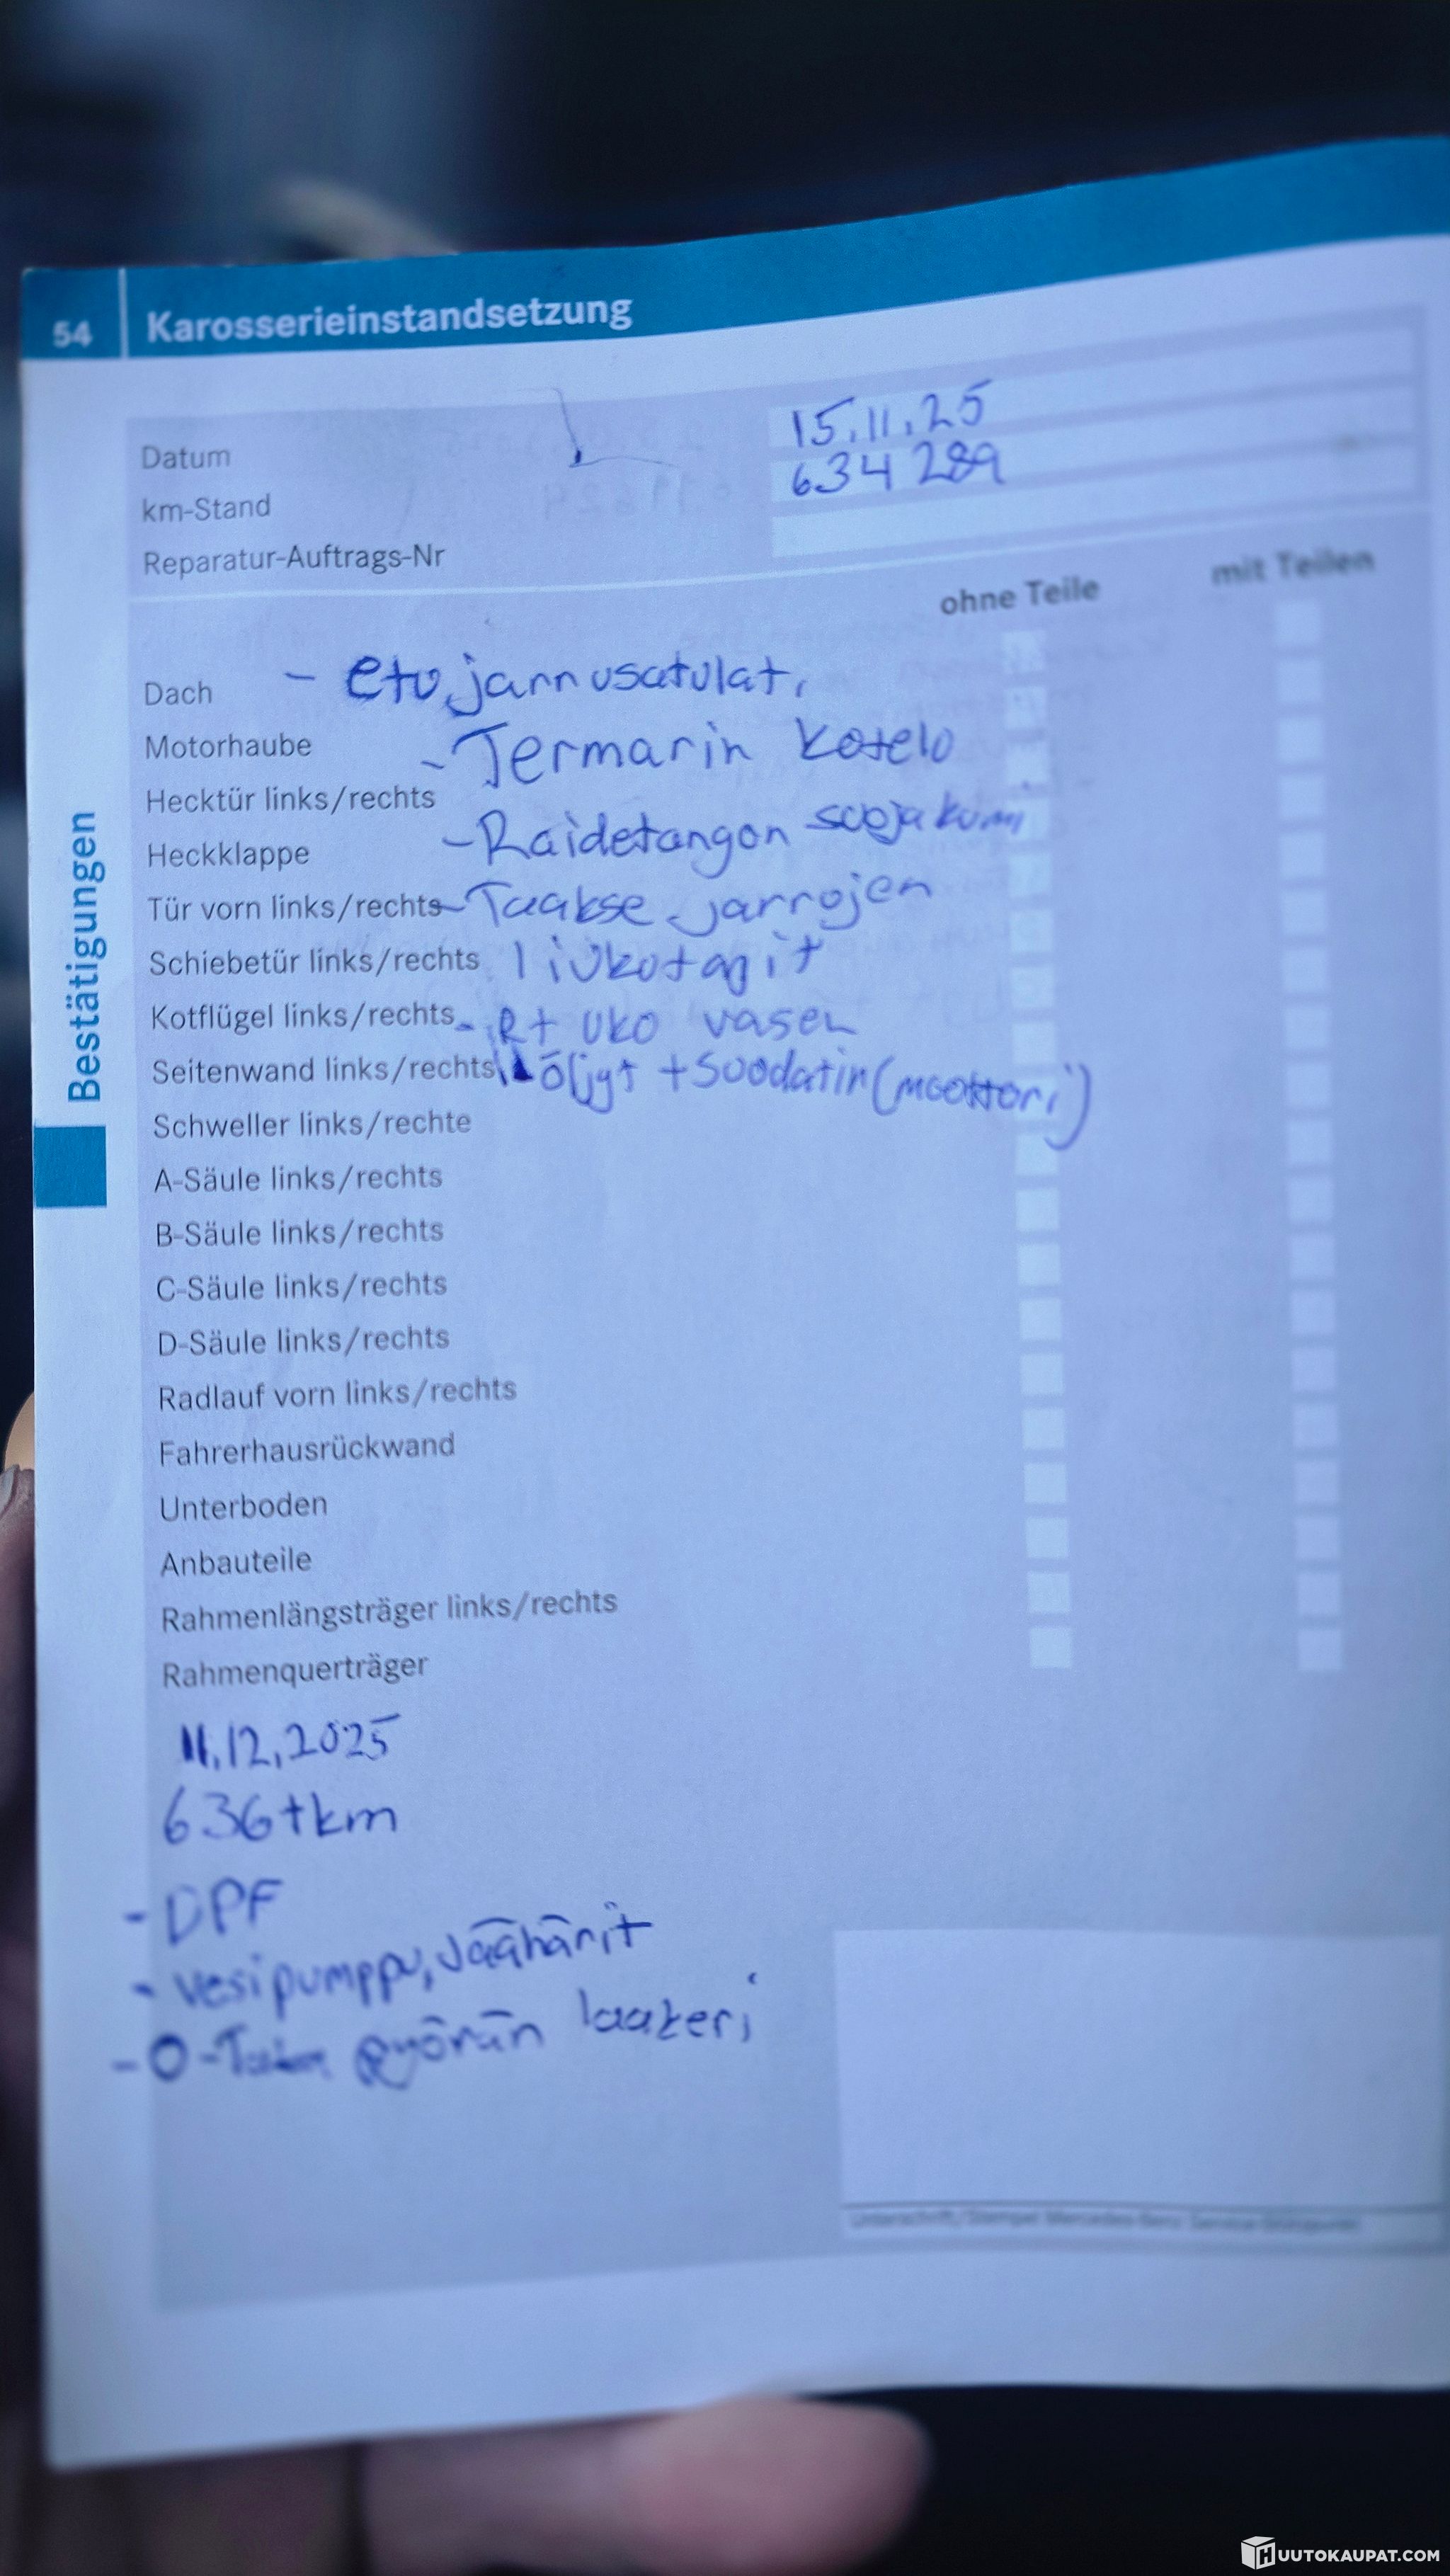 54 Karosserieinstandsetzung
Datum 15.11.25
km-Stand 634 289
Reparatur-Auftrags-Nr
ohne Teile mit Teilen
Dach - etu jarrusatulat,
Motorhaube - Termarin kotelo
Hecktür links/rechts
Heckklappe - Raidetangon suojakumi
Tür vorn links/rechts - Taakse jarrojen
Schiebetür links/rechts liukutapit
Kotflügel links/rechts - R+ uko vasen
Seitenwand links/rechts öljyt + suodatin (moottori)
Schweller links/rechte
A-Säule links/rechts
B-Säule links/rechts
C-Säule links/rechts
D-Säule links/rechts
Radlauf vorn links/rechts
Fahrerhausrückwand
Unterboden
Anbauteile
Rahmenlängsträger links/rechts
Rahmenquerträger
11.12.2025
636tkm
- DPF
- vesipumppu, Jäähärit
- O-Taka pyörän laakeri
Unterschrift/Stempel Mercedes-Benz Service-Stützpunkt
Bestätigungen
HUUTOKAUPAT.COM